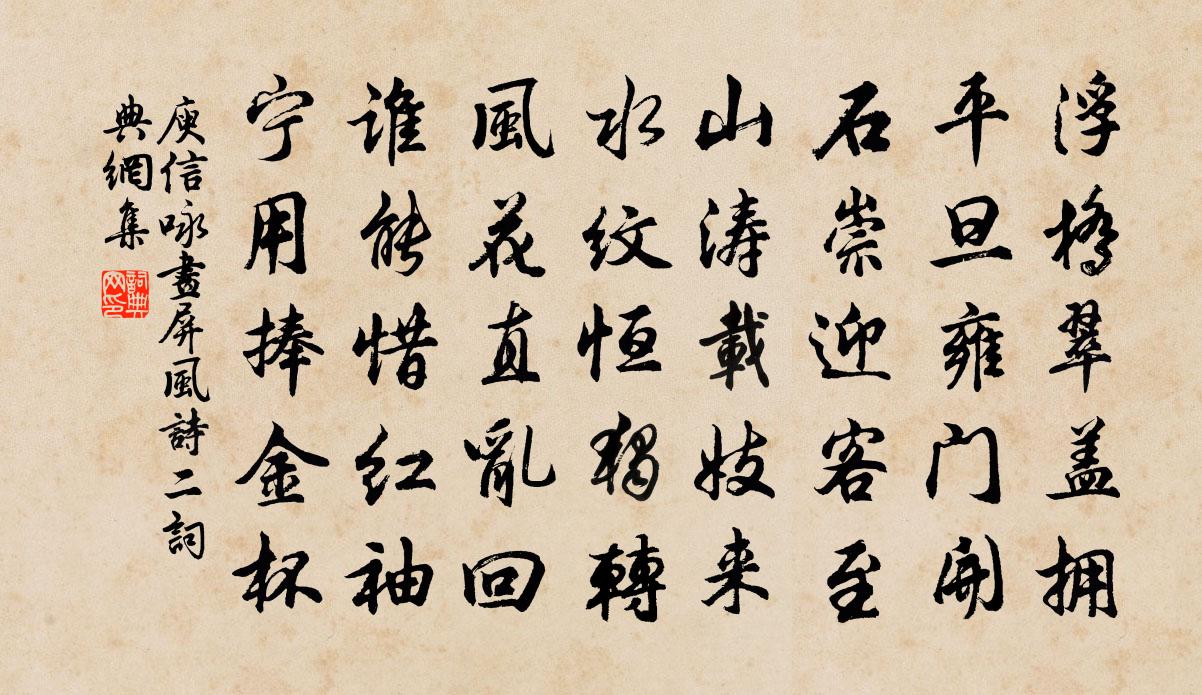 浮橋翠盖拥
平旦雍门開
石崇迎客至
山涛載妓来
水纹恒獨轉
風花直亂回
誰能惜红袖
宁用捧金杯
庾信咏畫屏風詩二詞
典網集
詞典网印